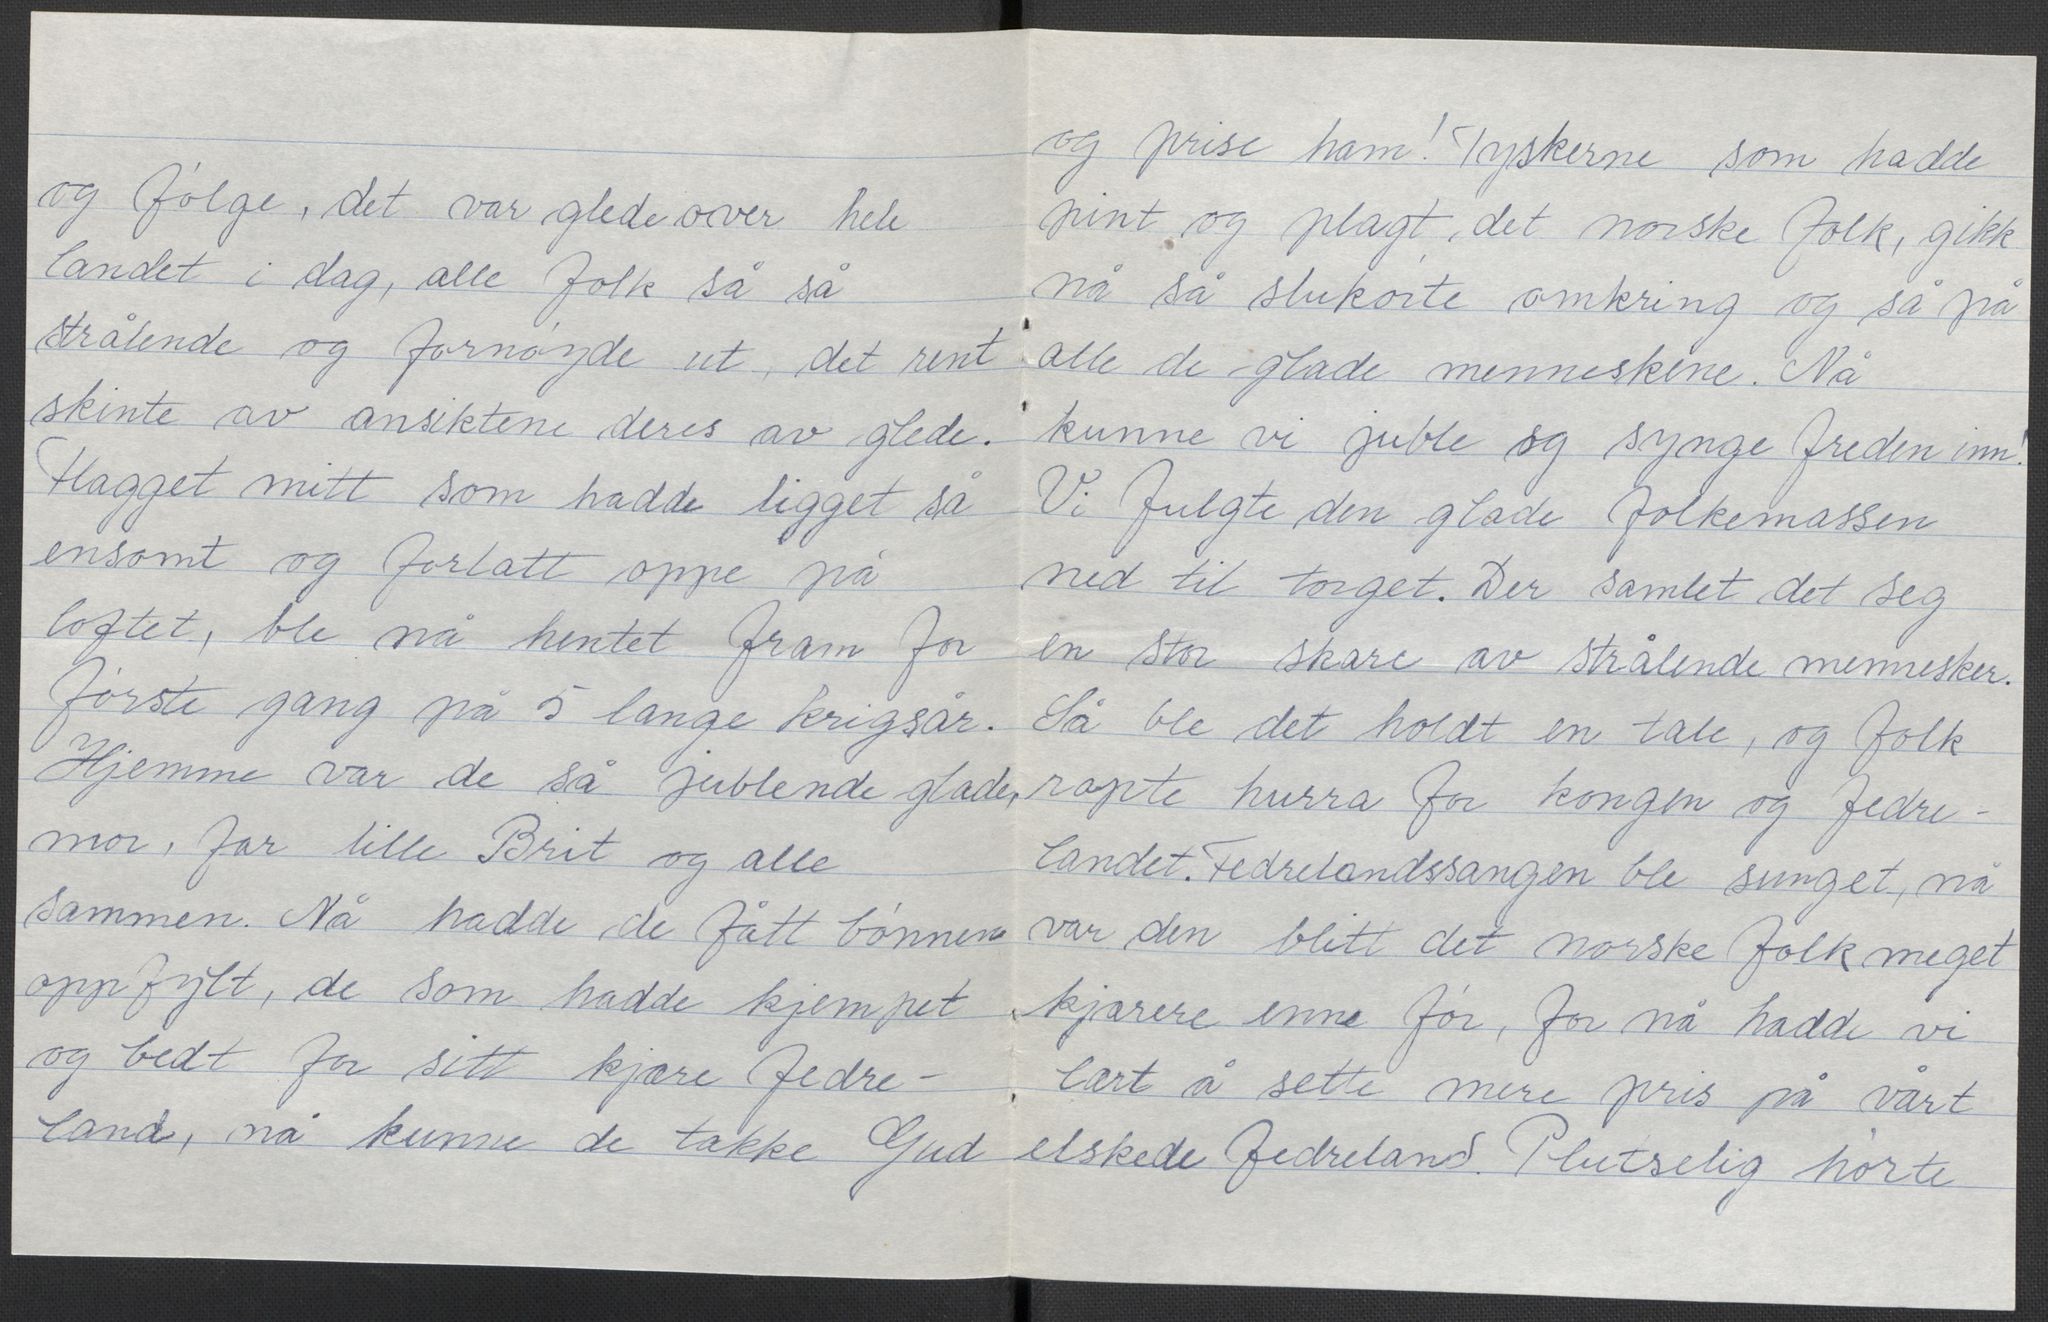 og følge, det var glede over hele
landet i dag, alle folk så så
strålende og fornøyde ut, det rent
skinte av ansiktene deres av glede.
Flagget mitt som hadde ligget så
ensomt og forlatt oppe på
loftet, ble nå hentet fram for
første gang på 5 lange krigsår.
Hjemme var de så jublende glade,
mor, far lille Brit og alle
sammen. Nå hadde de fått bønnene
oppfylt, de som hadde kjempet
og bedt for sitt kjære fedre-
land, nå kunne de takke Gud
og prise ham! Tyskerne som hadde
pint og plagt, det norske folk, gikk
nå så slukøite omkring og så på
alle de glade menneskene. Nå
kunne vi juble og synge freden inn!
Vi fulgte den glade folkemassen
ned til torget. Der samlet det seg
en stor skare av strålende mennesker.
Så ble det holdt en tale, og folk
ropte hurra for kongen og fedre-
landet. Fedrelandssangen ble sunget, nå
var den blitt det norske folk meget
kjærere enne før, for nå hadde vi
lært å sette mere pris på vårt
elskede fedreland. Plutselig hørte